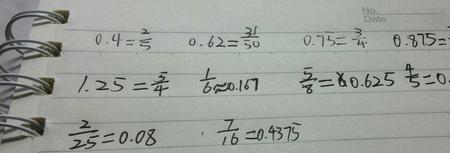 No.
Date
0.4=2/5 0.62=31/50 0.75=3/4 0.875=
1.25=5/4 1/6≈0.167 5/8=0.625 4/5=0.
2/25=0.08 7/16=0.4375